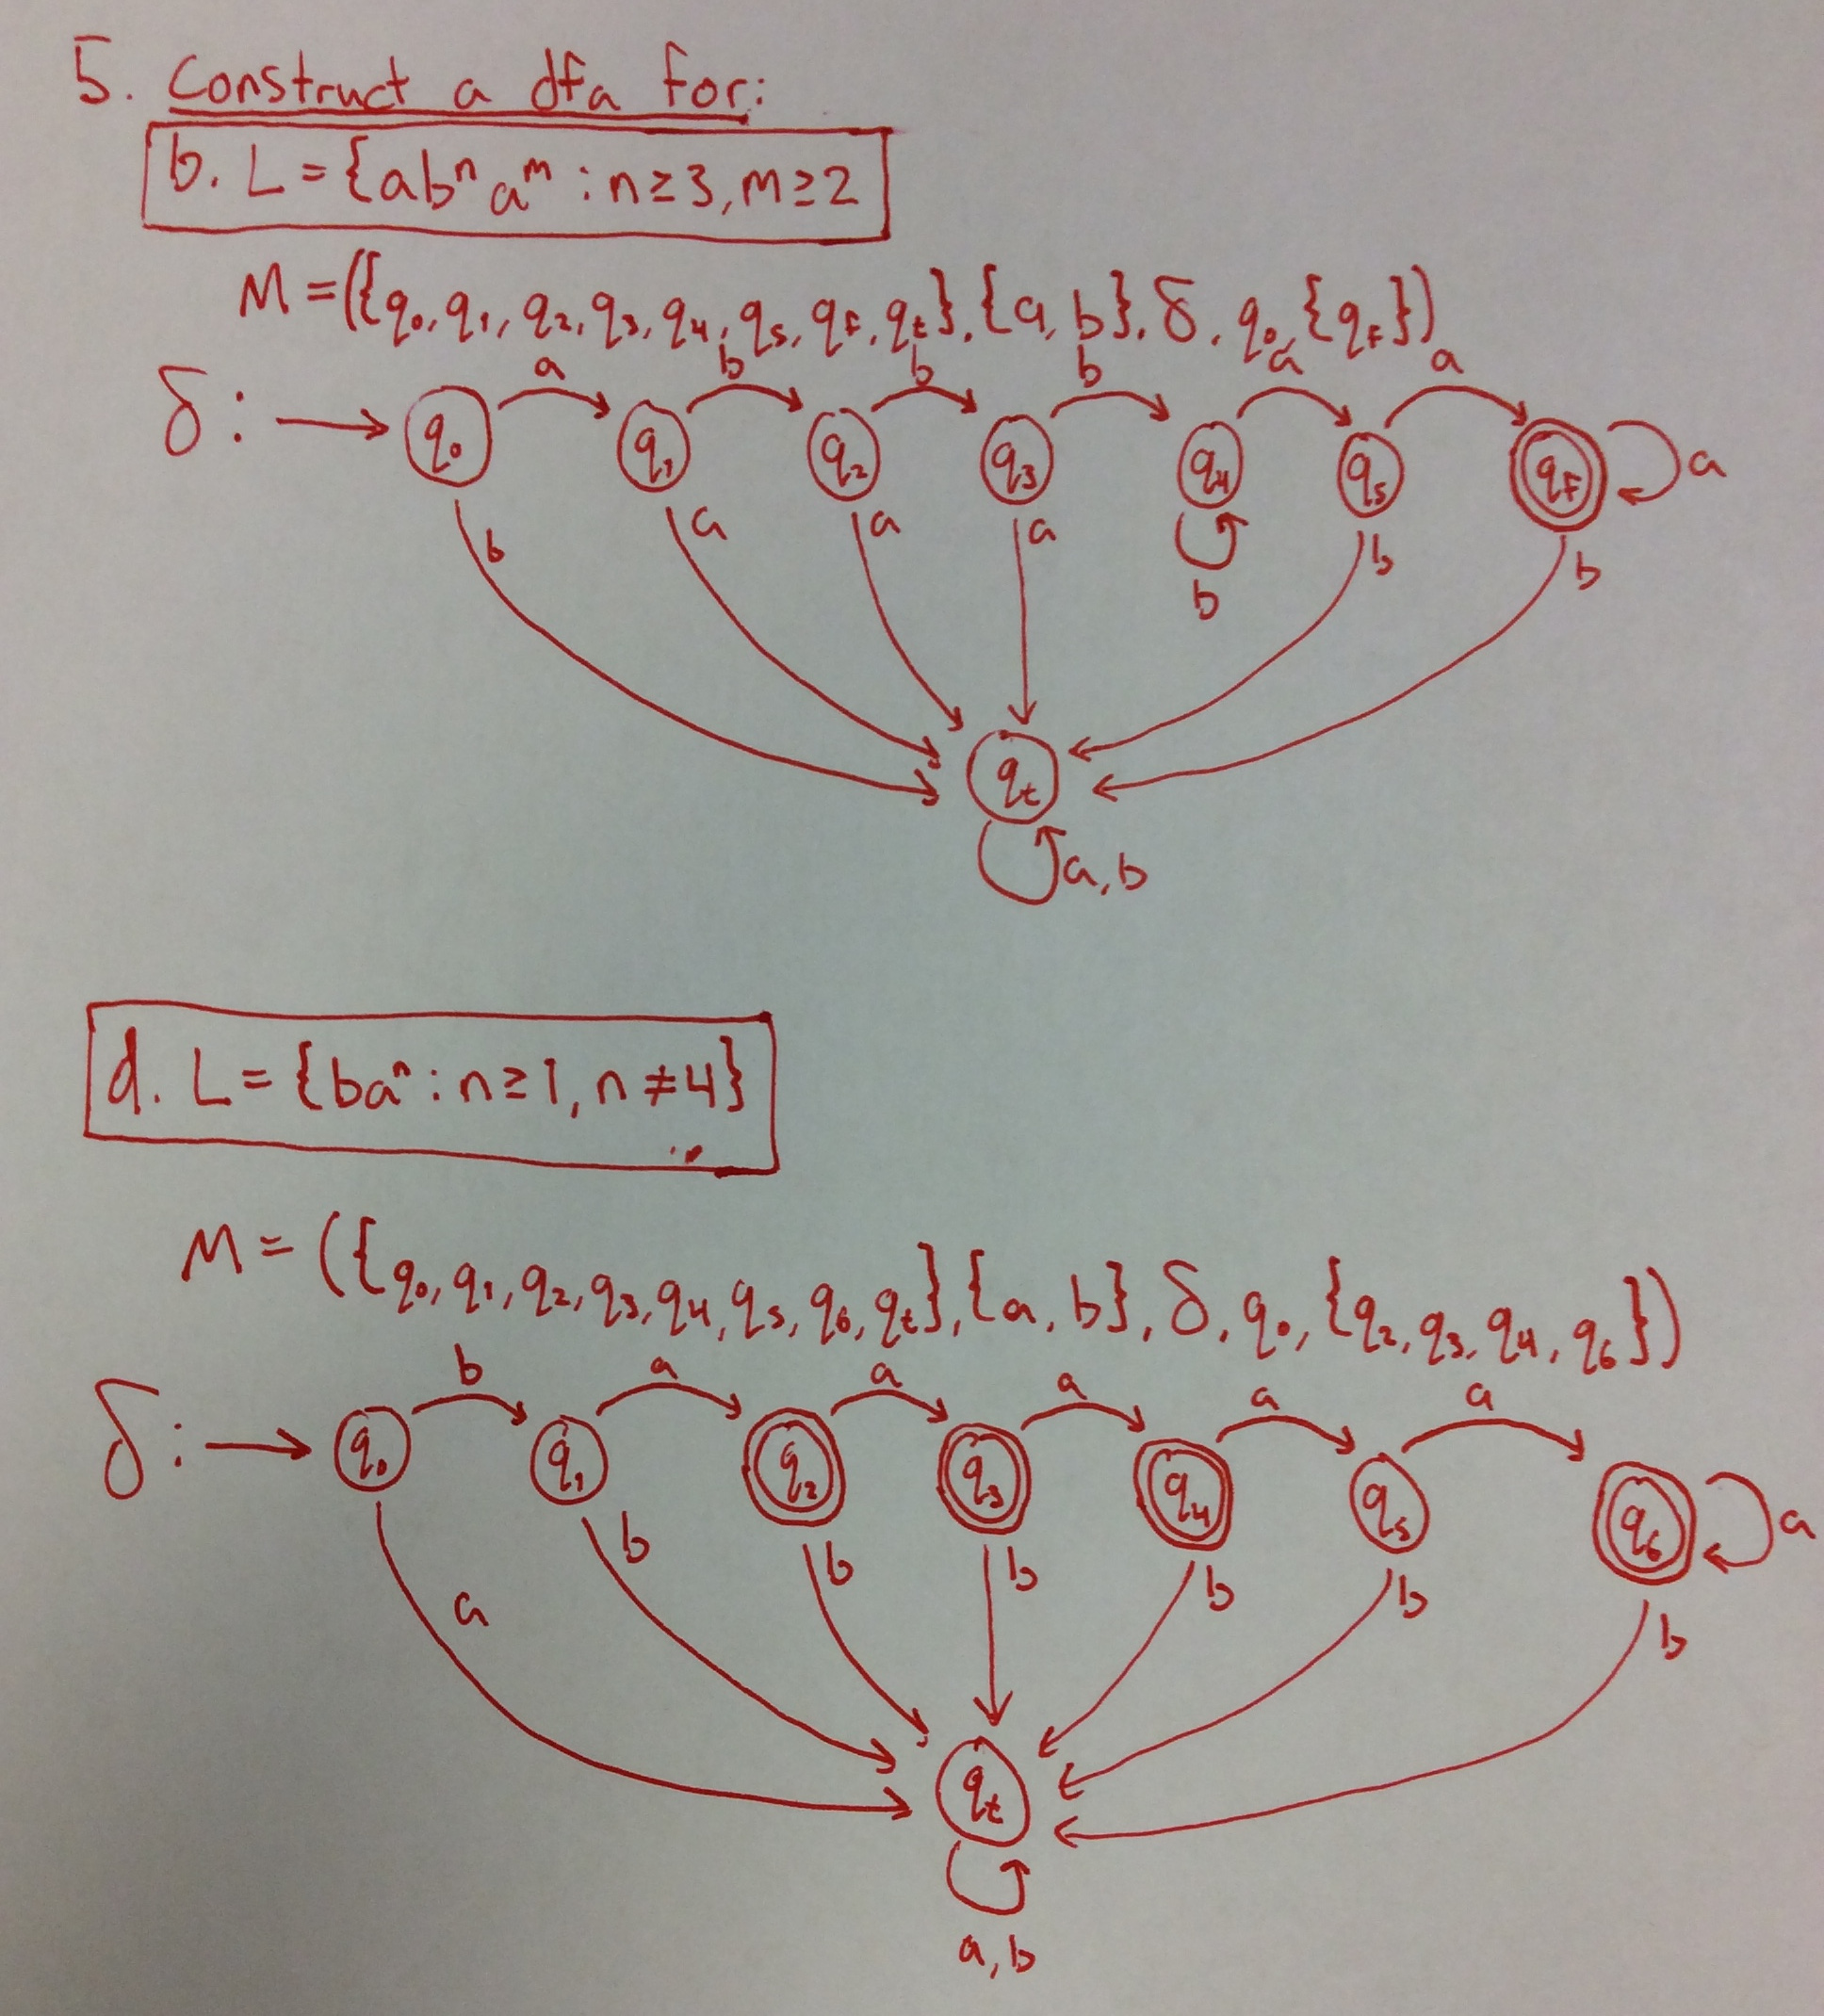 5. Construct a dfa for:
b. L = {abⁿaᵐ : n ≥ 3, m ≥ 2
M = ({q₀, q₁, q₂, q₃, q₄, q₅, q_f, q_t}, {a, b}, δ, q₀, {q_f})
a b b b a a
δ: q₀ q₁ q₂ q₃ q₄ q₅ q_f a
b a a a b b b
q_t
a, b
d. L = {baⁿ : n ≥ 1, n ≠ 4}
M = ({q₀, q₁, q₂, q₃, q₄, q₅, q₆, q_t}, {a, b}, δ, q₀, {q₂, q₃, q₄, q₆})
b a a a a a
δ: q₀ q₁ q₂ q₃ q₄ q₅ q₆ a
a b b b b b b
q_t
a, b